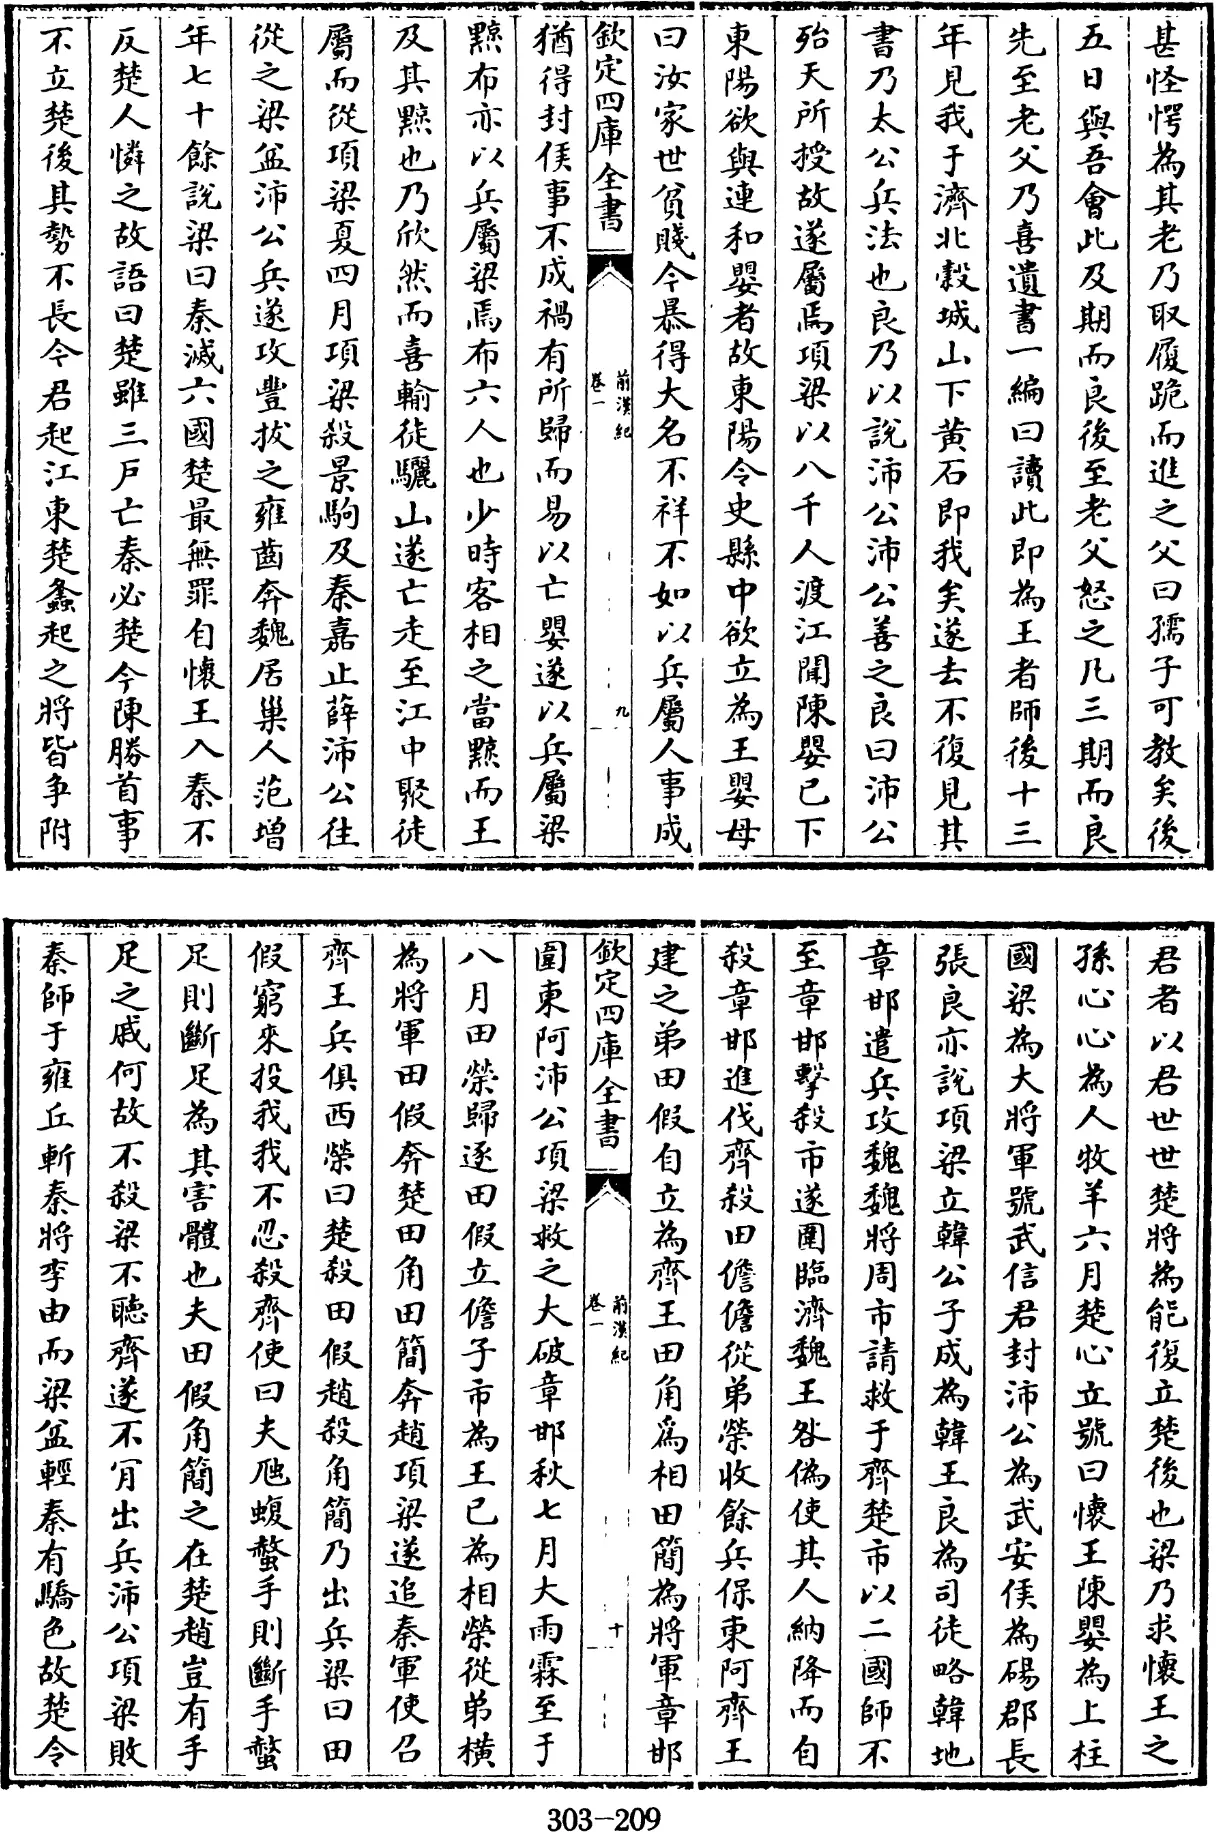 甚怪愕為其老乃取履跪而進之父曰孺子可教矣後
五日與吾會此及期而良後至老父怒之凡三期而良
先至老父乃喜遺書一編曰讀此即為王者師後十三
年見我于濟北穀城山下黄石即我矣遂去不復見其
書乃太公兵法也良乃以說沛公沛公善之良曰沛公
殆天所授故遂屬焉項梁以八千人渡江聞陳嬰已下
東陽欲與連和嬰者故東陽令史縣中欲立為王嬰母
曰汝家世貧賤今暴得大名不祥不如以兵屬人事成
欽定四庫全書
前漢紀
卷一
九
猶得封侯事不成禍有所歸而易以亡嬰遂以兵屬梁
黥布亦以兵屬梁焉布六人也少時客相之當黥而王
及其黥也乃欣然而喜輸徒驪山遂亡走至江中聚徒
屬而從項梁夏四月項梁殺景駒及秦嘉止薛沛公往
從之梁益沛公兵遂攻豐拔之雍齒奔魏居巢人范增
年七十餘說梁曰秦滅六國楚最無罪自懷王入秦不
反楚人憐之故語曰楚雖三户亡秦必楚今陳勝首事
不立楚後其勢不長今君起江東楚蠭起之將皆争附
君者以君世世楚將為能復立楚後也梁乃求懷王之
孫心心為人牧羊六月楚心立號曰懷王陳嬰為上柱
國梁為大將軍號武信君封沛公為武安侯為碭郡長
張良亦說項梁立韓公子成為韓王良為司徒略韓地
章邯遣兵攻魏魏將周市請救于齊楚市以二國師不
至章邯擊殺市遂圍臨濟魏王咎偽使其人納降而自
殺章邯進伐齊殺田儋儋從弟榮收餘兵保東阿齊王
建之弟田假自立為齊王田角爲相田簡為將軍章邯
欽定四庫全書
前漢紀
卷一
十
圍東阿沛公項梁救之大破章邯秋七月大雨霖至于
八月田榮歸逐田假立儋子市為王已為相榮從弟橫
為將軍田假奔楚田角田簡奔趙項梁遂追秦軍使召
齊王兵俱西榮曰楚殺田假趙殺角簡乃出兵梁曰田
假窮來投我我不忍殺齊使曰夫虺蝮螫手則斷手螫
足則斷足為其害體也夫田假角簡之在楚趙豈有手
足之戚何故不殺梁不聽齊遂不肎出兵沛公項梁敗
秦師于雍丘斬秦將李由而梁益輕秦有驕色故楚令
303-209